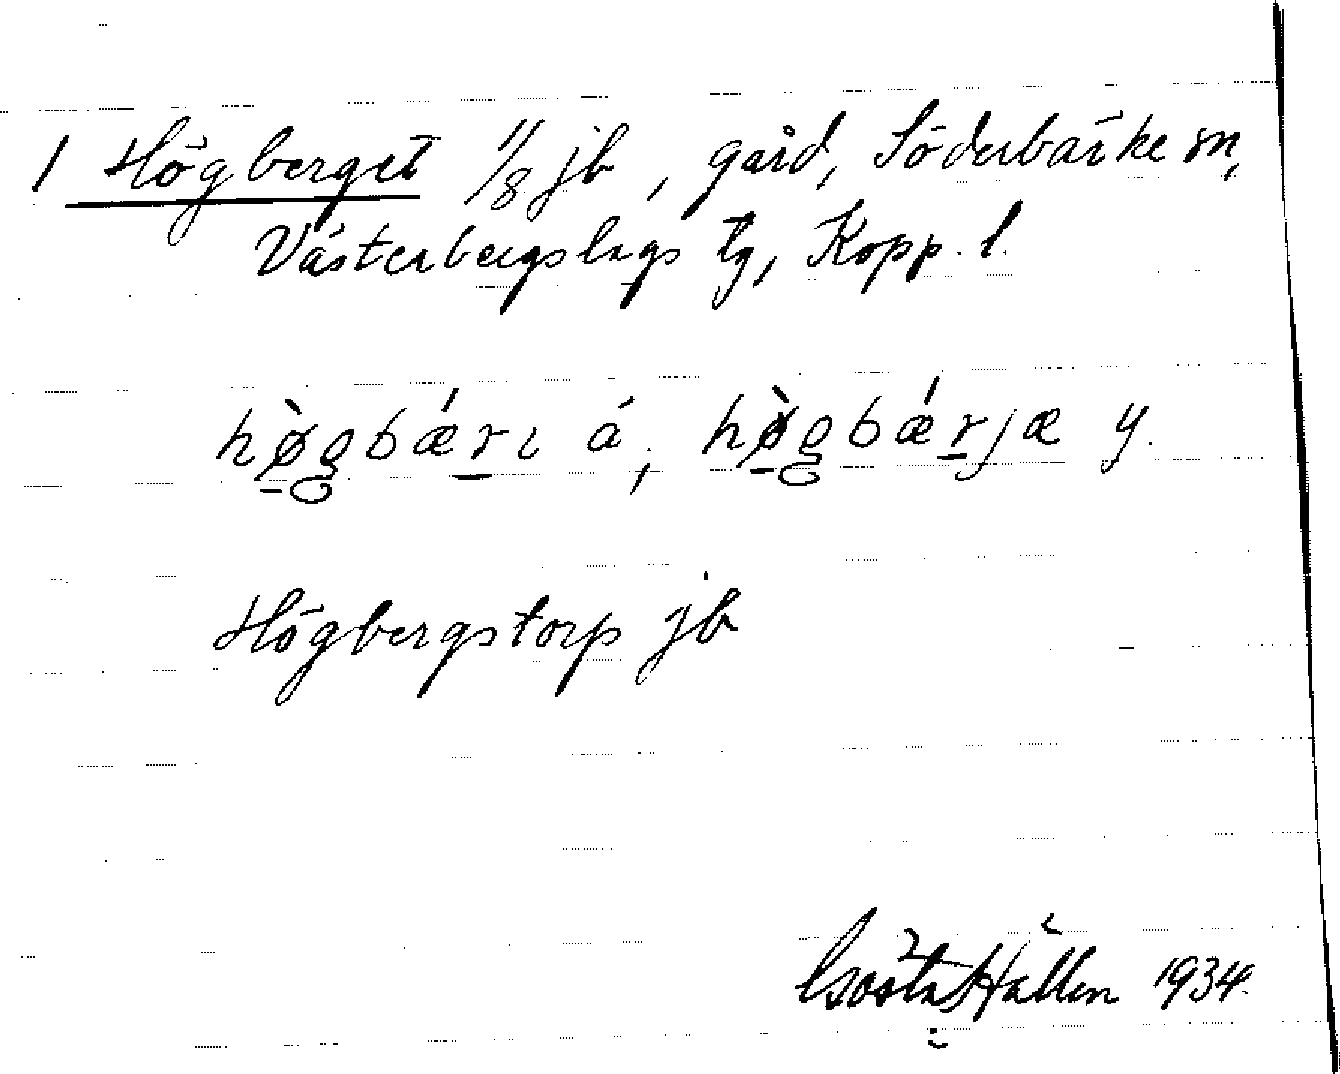 1 Högberget 1/8 jb, gård, Söderbärke sn,
Västerbergslags tg, Kopp. l.
hø̠̀gbǽr̠ɩ á, hø̠̀gbǽr̠jæ y.
Högbergstorp jb
Gösta Hallen 1934